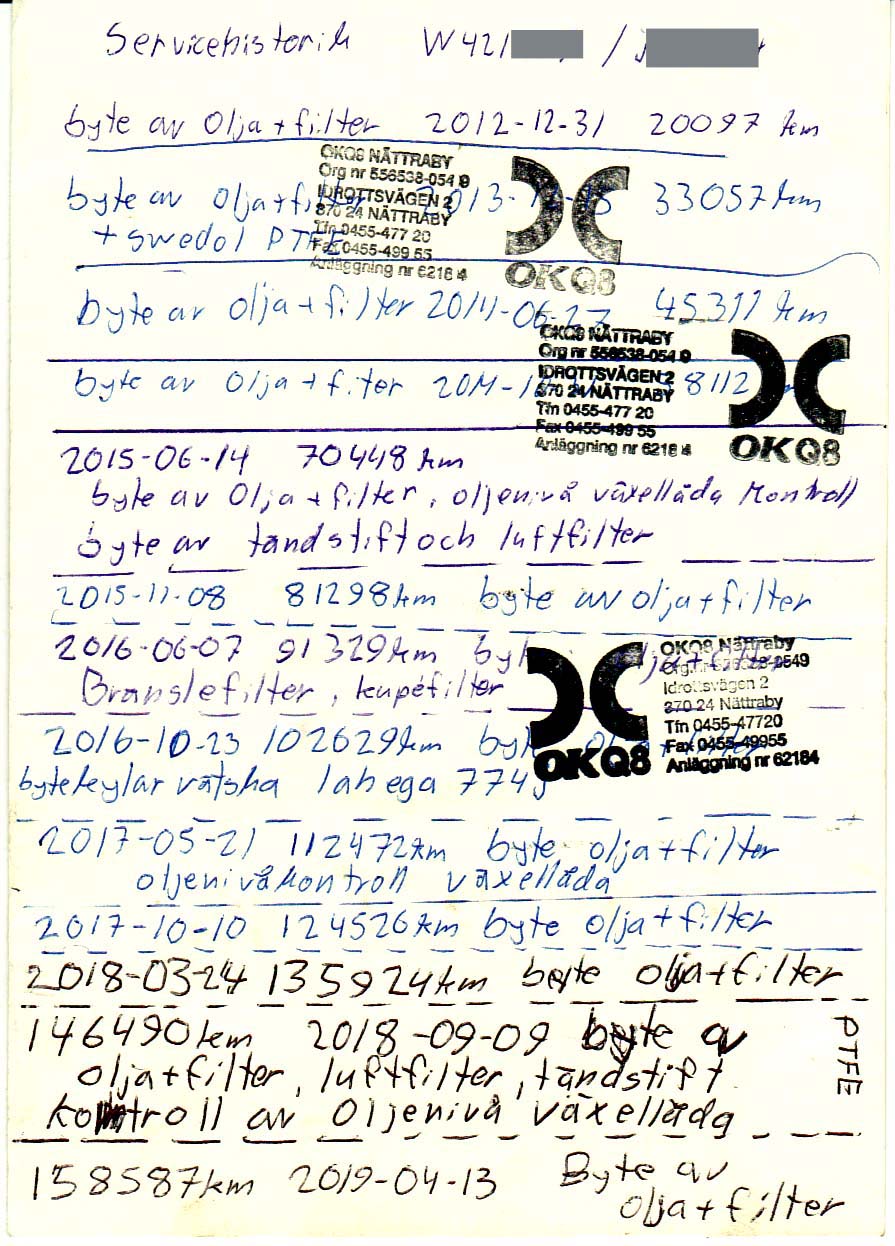 Servicehistorik W421 /
byte av olja + filter 2012-12-31 20097 km
OKQ8 NÄTTRABY
Org nr 556538-0549
IDROTTSVÄGEN 2
370 24 NÄTTRABY
Tfn 0455-477 20
Fax 0455-499 55
Anläggning nr 62184
OKQ8
byte av olja + filter 2013- 33057 km
+ swedol PTFE
byte av olja + filter 2014-06-27 45311 km
OKQ8 NÄTTRABY
Org nr 556538-0549
IDROTTSVÄGEN 2
370 24 NÄTTRABY
Tfn 0455-477 20
Fax 0455-499 55
Anläggning nr 62184
OKQ8
byte av olja + filter 2014- 8112
2015-06-14 70448 km
byte av olja + filter, oljenivå växellåda kontroll
byte av tändstift och luftfilter
2015-11-08 81298 km byte av olja + filter
2016-06-07 91329 km byte olja + filter
Bränslefilter, kupéfilter
OKQ8
OKQ8 Nättraby
Org.nr 556538-0549
Idrottsvägen 2
370 24 Nättraby
Tfn 0455-47720
Fax 0455-49955
Anläggning nr 62184
2016-10-23 102629 km byte olja + filter
byte kylar vätska lahega 774
2017-05-21 112472 km byte olja + filter
oljenivåkontroll växellåda
2017-10-10 124526 km byte olja + filter
2018-03-24 135924 km byte olja + filter
146490 km 2018-09-09 byte av
olja + filter, luftfilter, tändstift
kontroll av oljenivå växellåda
PTFE
158587 km 2019-04-13 Byte av
olja + filter